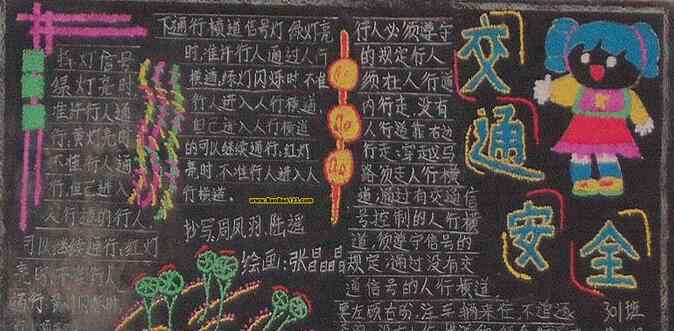 交通安全
指灯信号
绿灯亮时
准许行人通
行,黄灯亮时
不准行人通
行,但已进入
人行道的行人
可以继续通行,红灯
亮时,不准行人
通行,黄灯闪烁时
下通行横道信号灯绿灯亮
时,准许行人通过人行
横道,绿灯闪烁时不准
行人进入人行横道,
但已进入人行横道
的可以继续通行,红灯
亮时不准行人进入人
行横道.
www.BanBao123.com
抄写周凤羽.陈遥
绘画:张晶晶
行人必须遵守
的规定行人
须在人行道
内行走,没有
人行道靠右边
行走;穿越马
路须走人行横
道;通过有交通信
号控制的人行横
道,须遵守信号的
规定;通过没有交
通信号的人行横道,
要左顾右盼,注车辆来往,不追逐
301班